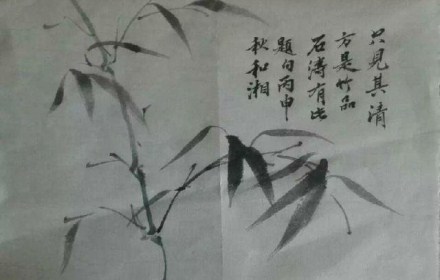 只見其清
方是竹品
石濤有此
題句丙申
秋和湘